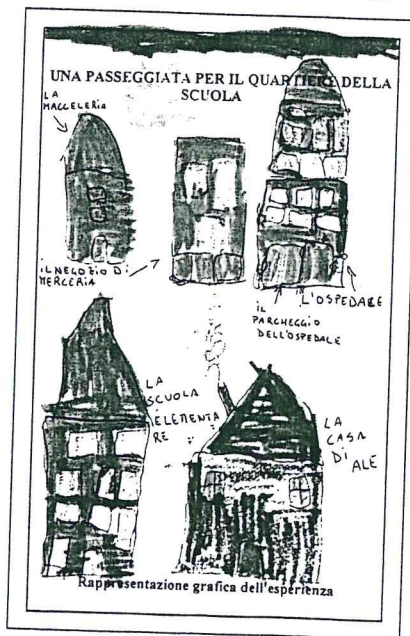 UNA PASSEGGIATA PER IL QUARTIERE DELLA
SCUOLA
LA
MACCELERIA
IL NEGOZIO DI
MERCERIA
L'OSPEDARE
IL
PARCHEGGIO
DELL'OSPEDALE
LA
SCUOLA
ELEMENTA
RE
LA
CASA
DI
ALE
Rappresentazione grafica dell'esperienza